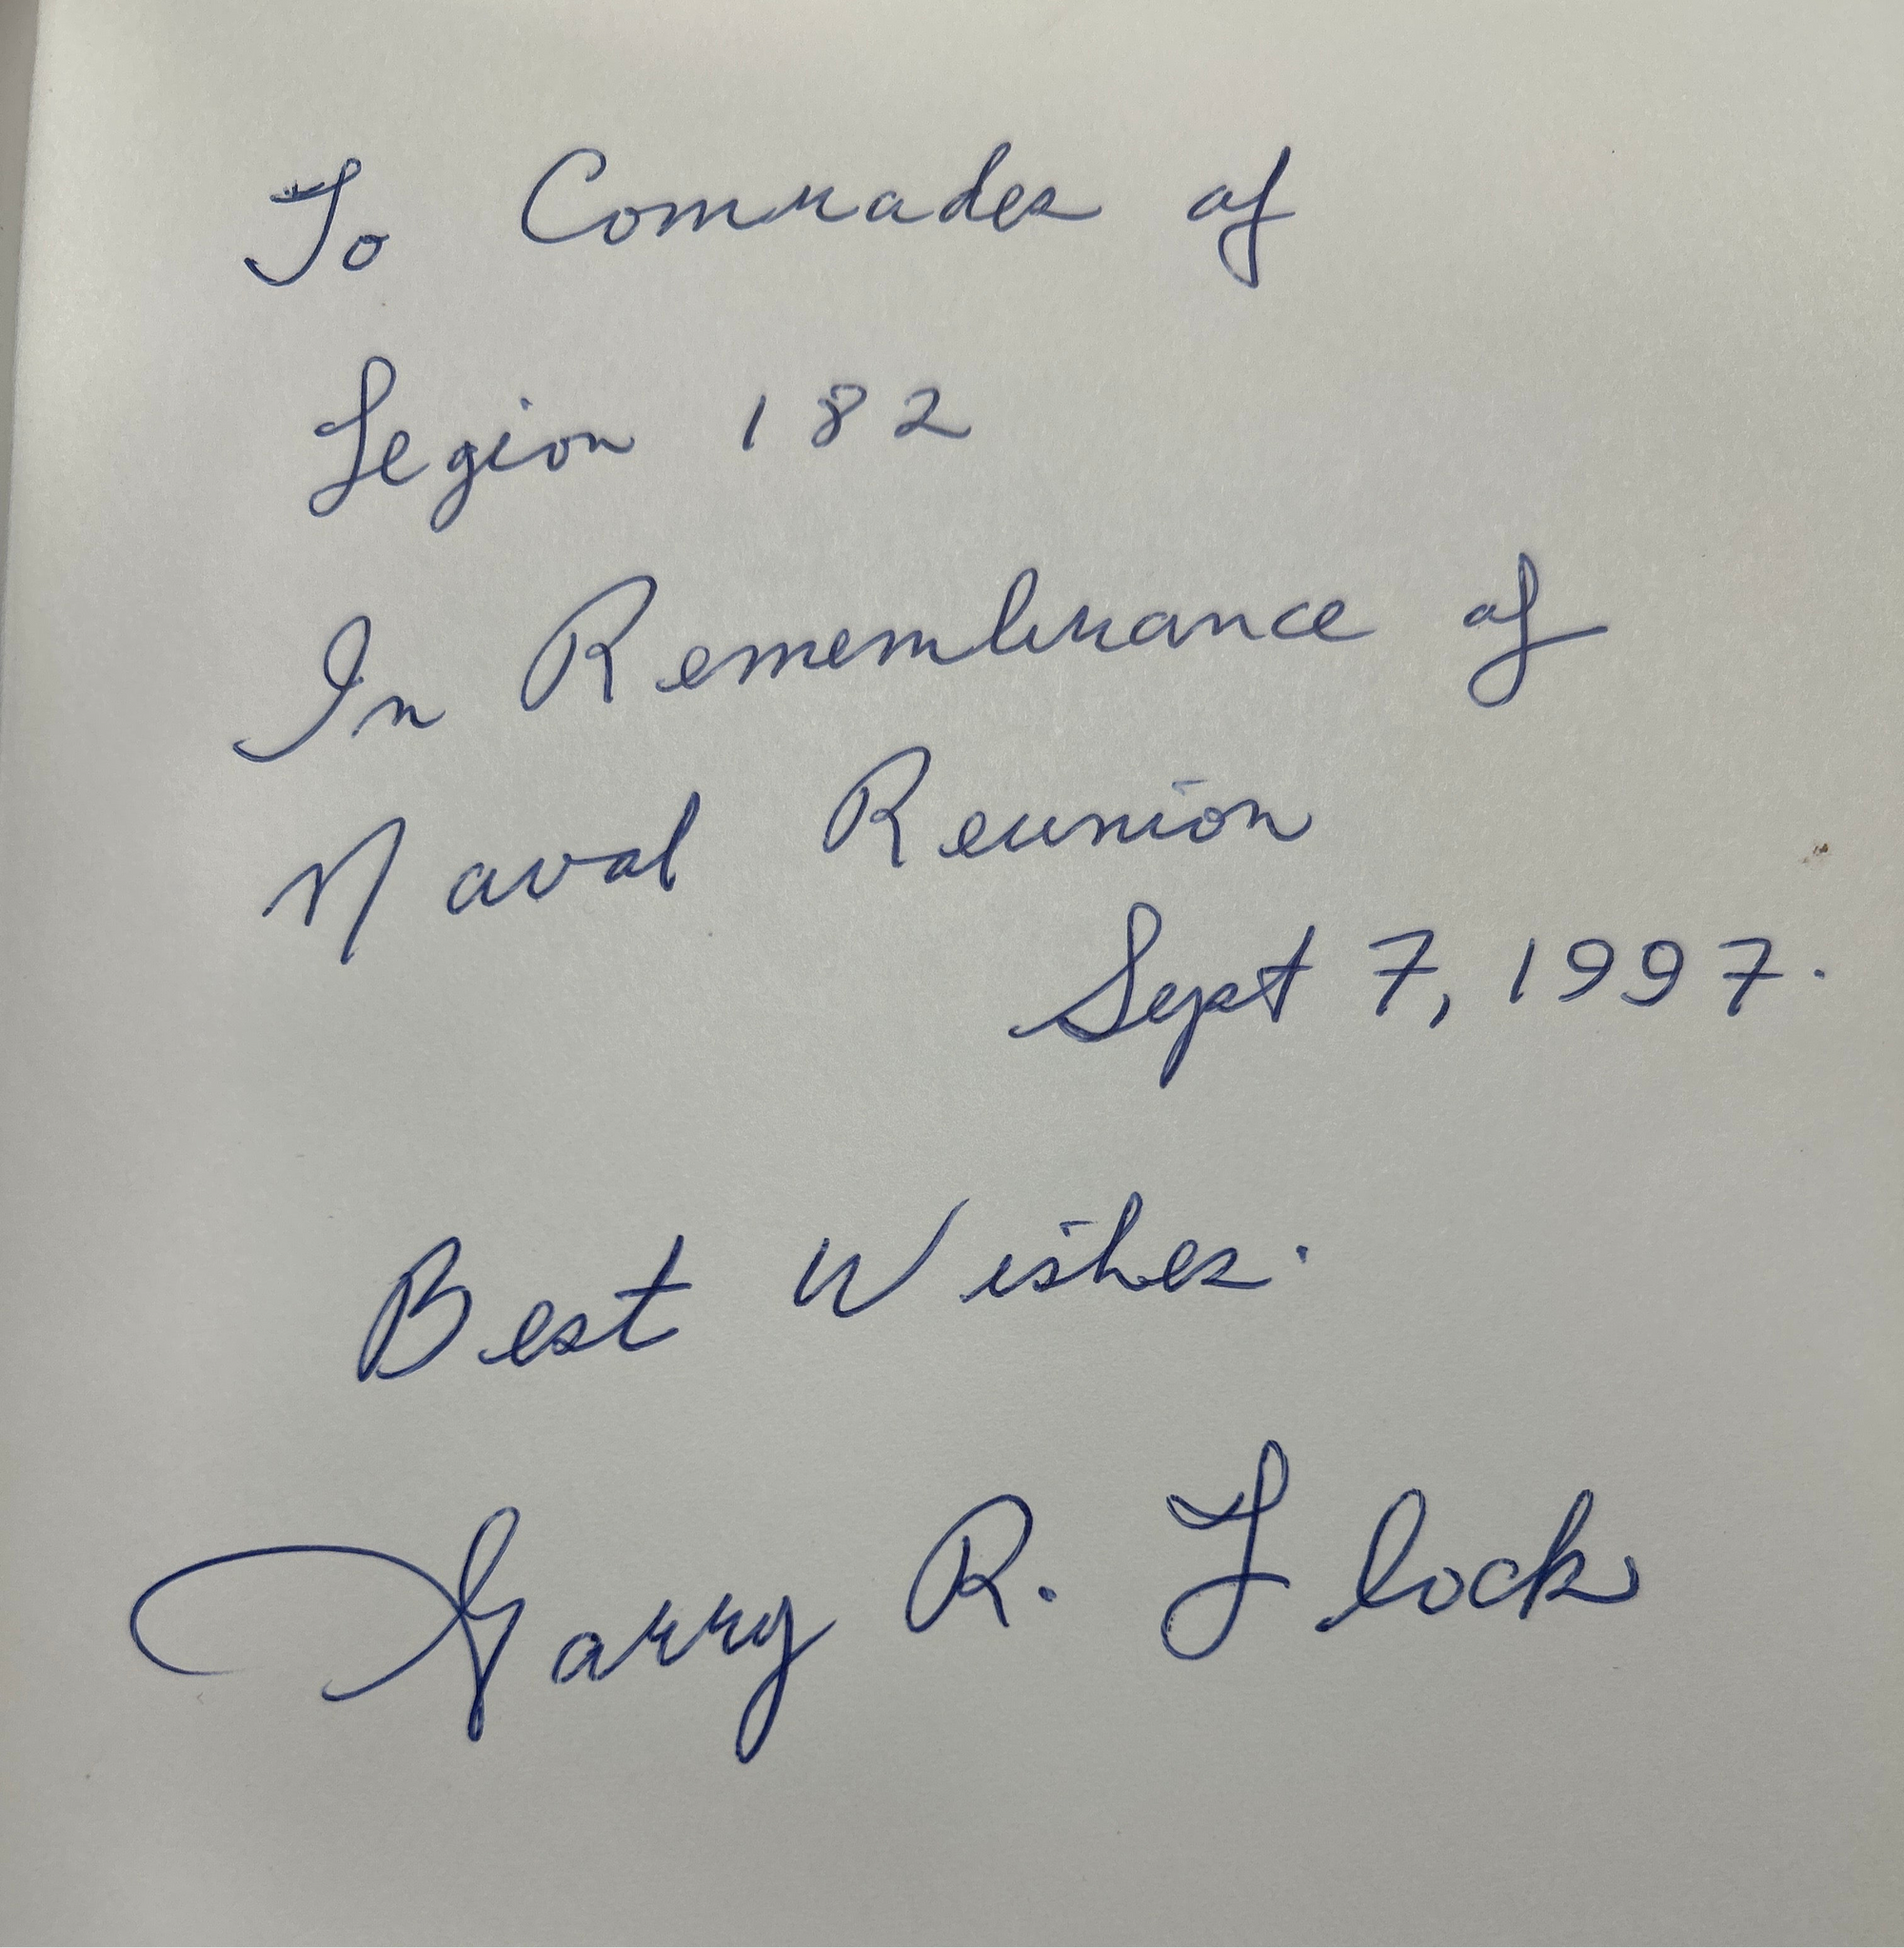 To Comrades of
Legion 182
In Remembrance of
Naval Reunion
Sept 7, 1997.
Best Wishes.
Garry R. Flock